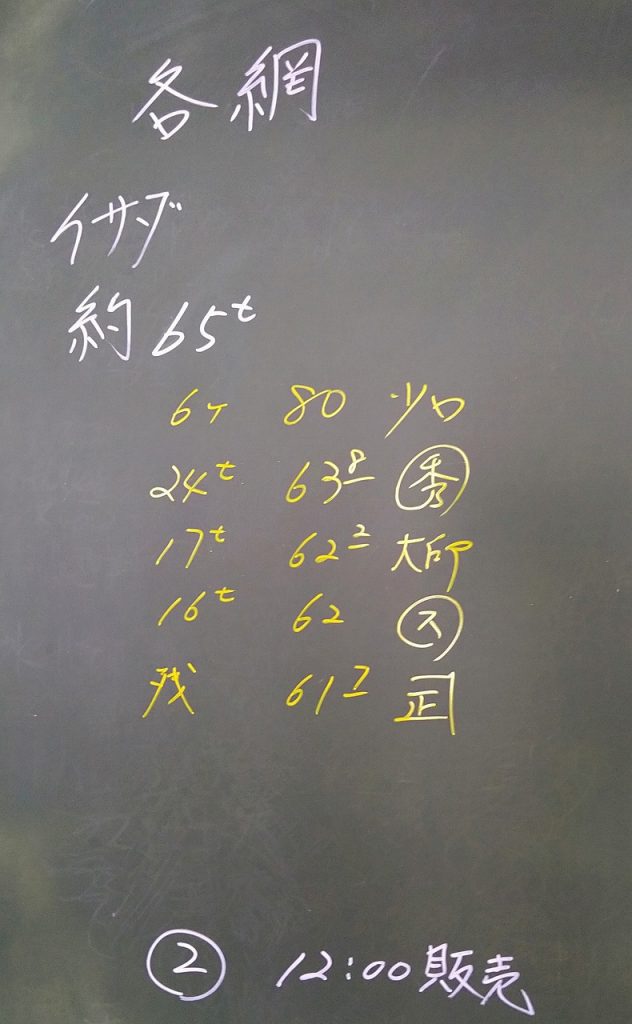 各網
イサダ
約65t
6ケ 80
24t 63 8 秀
17t 62 2 大印
16t 62 ス
残 61 7 正
② 12:00販売